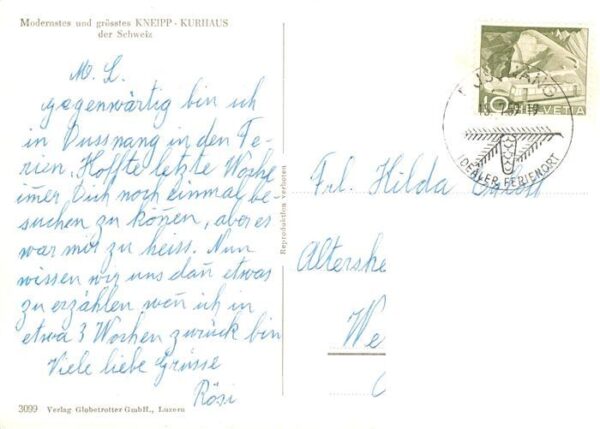 Modernstes und grösstes KNEIPP - KURHAUS
der Schweiz
M. L.
gegenwärtig bin ich
in Dussnang in den Fe-
rien. Hoffte letzte Woche
imer Dich noch einmal be-
suchen zu könen, aber es
war mir zu heiss. Nun
wissen wir uns dañ etwas
zu erzählen weñ ich in
etwa 3 Wochen zurück bin
Viele liebe Grüsse
Rösi
3099 Verlag Globetrotter GmbH., Luzern
Reproduktion verboten
10
HELVETIA
IDEALER FERIENORT
Frl. Hilda
Altershe
We